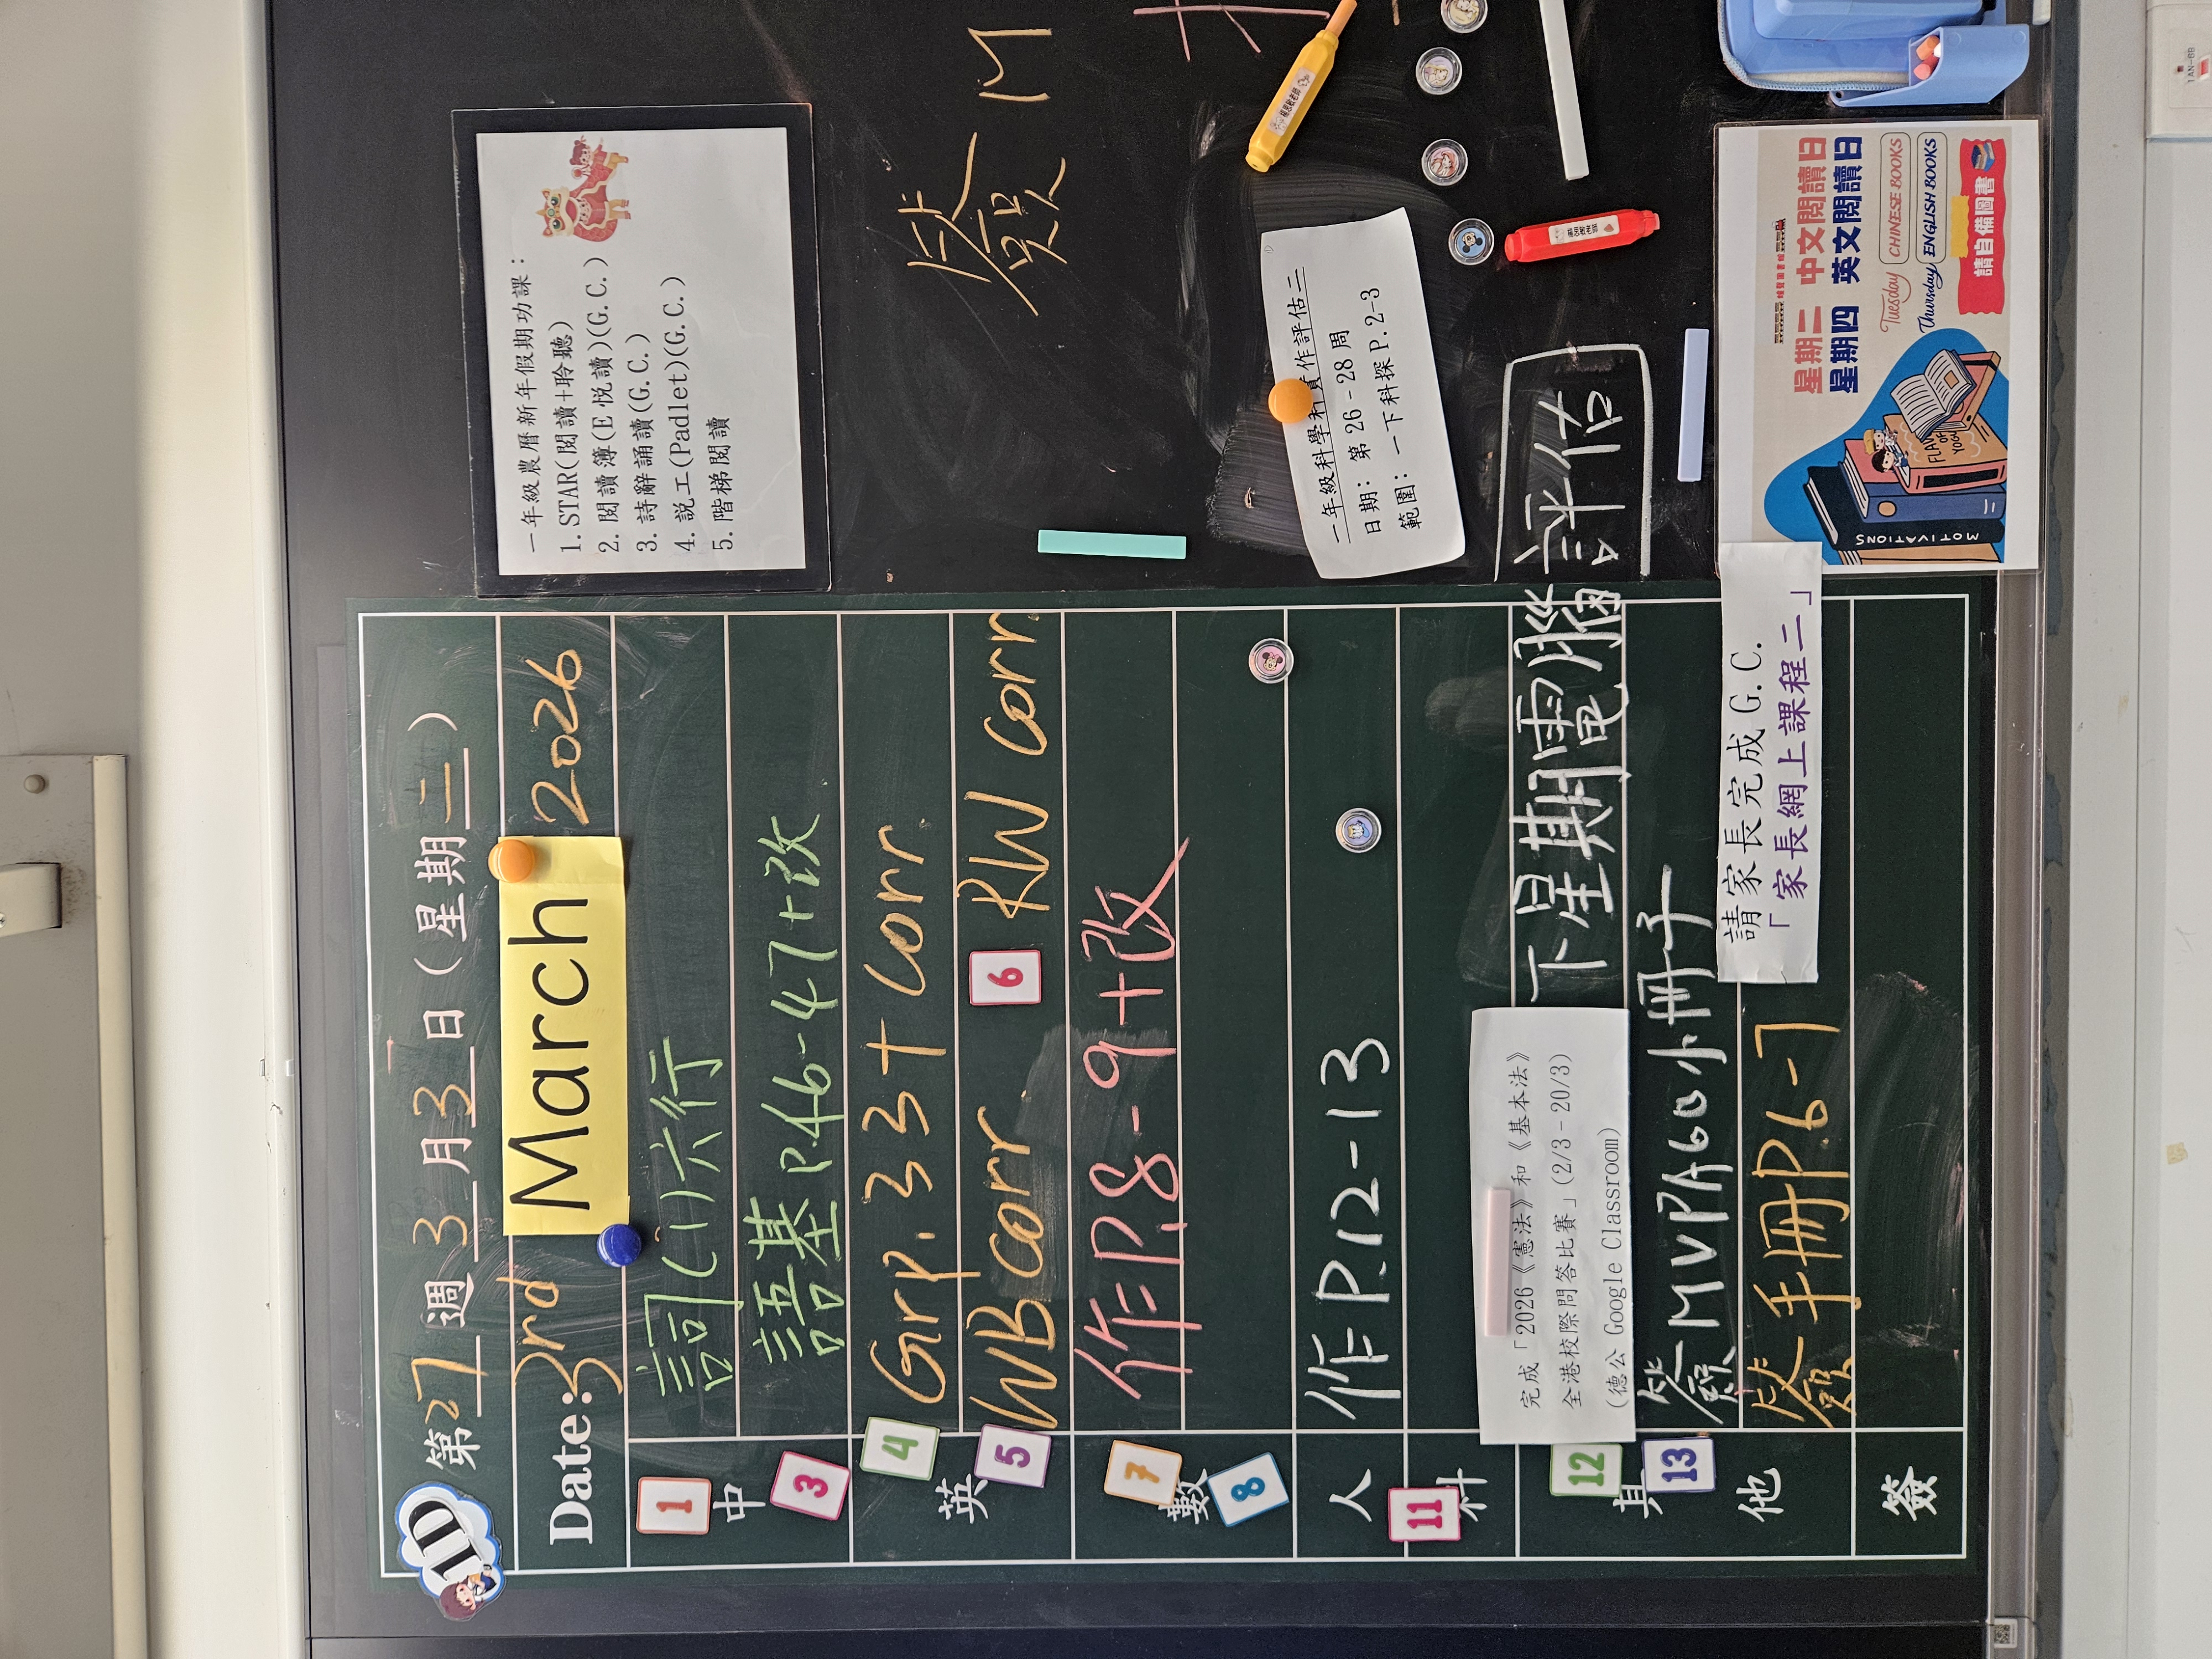 1D
第27週 3月3日(星期二)
Date: 3rd March 2026
1
中
3
詞(1)六行
語基P.46-47+改
4
英
5
Grp. 33 + Corr
WB corr 6 RW corr.
7
數
8
作P.8-9+改
人
作P.12-13
11
科
12
其
13
他
完成「2026《憲法》和《基本法》
全港校際問答比賽」(2/3-20/3)
(德公 Google Classroom)
下星期電腦評估
簽MVPA60小冊子
簽手冊P.6-7
請家長完成G.C.
「家長網上課程二」
簽
一年級農曆新年假期功課：
1. STAR(閱讀+聆聽)
2. 閱讀簿(E悅讀)(G.C.)
3. 詩辭誦讀(G.C.)
4. 説工(Padlet)(G.C.)
5. 階梯閱讀
簽
一年級科學科實作評估二
日期：第26-28周
範圍：一下科探P.2-3
星期二 中文閱讀日
星期四 英文閱讀日
Tuesday CHINESE BOOKS
Thursday ENGLISH BOOKS
請自備圖書
MOTIVATIONS